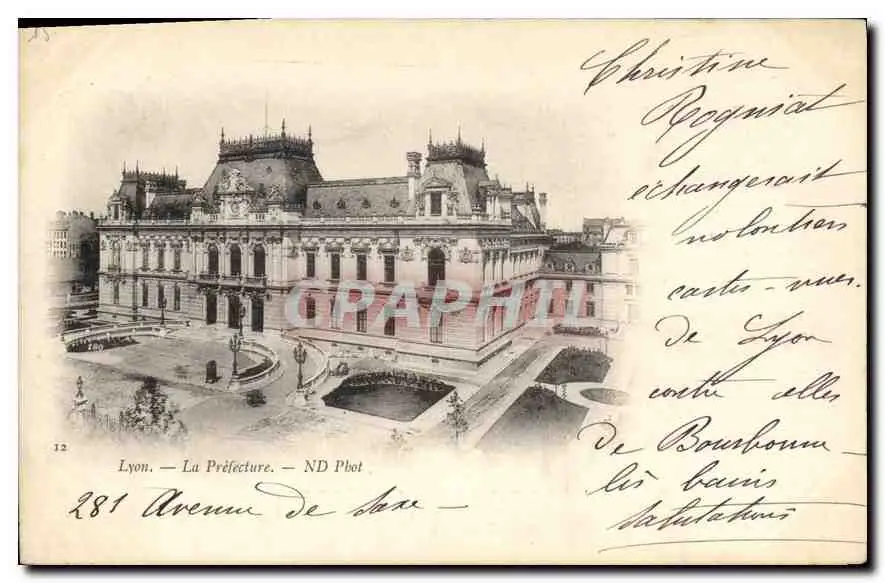 Christine
Rogniat
échangerait
volontiers
cartes-vues
de Lyon
contre elles
De Bourbonne
lis bains
Salutations
CARAPHIL
12
Lyon. — La Préfecture. — ND Phot
281 Avenue de Saxe —